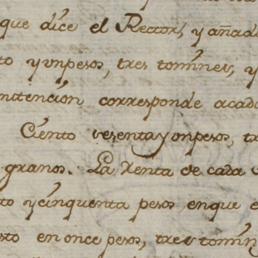 que dice el Rector, y añade
to y un pesos, tres tomines, y
mitencion, corresponde acada
Ciento sesenta y un pesos, tr
granos. La Renta de cada
to y cinquenta pesos en que e
sto en once pesos, tres tomin